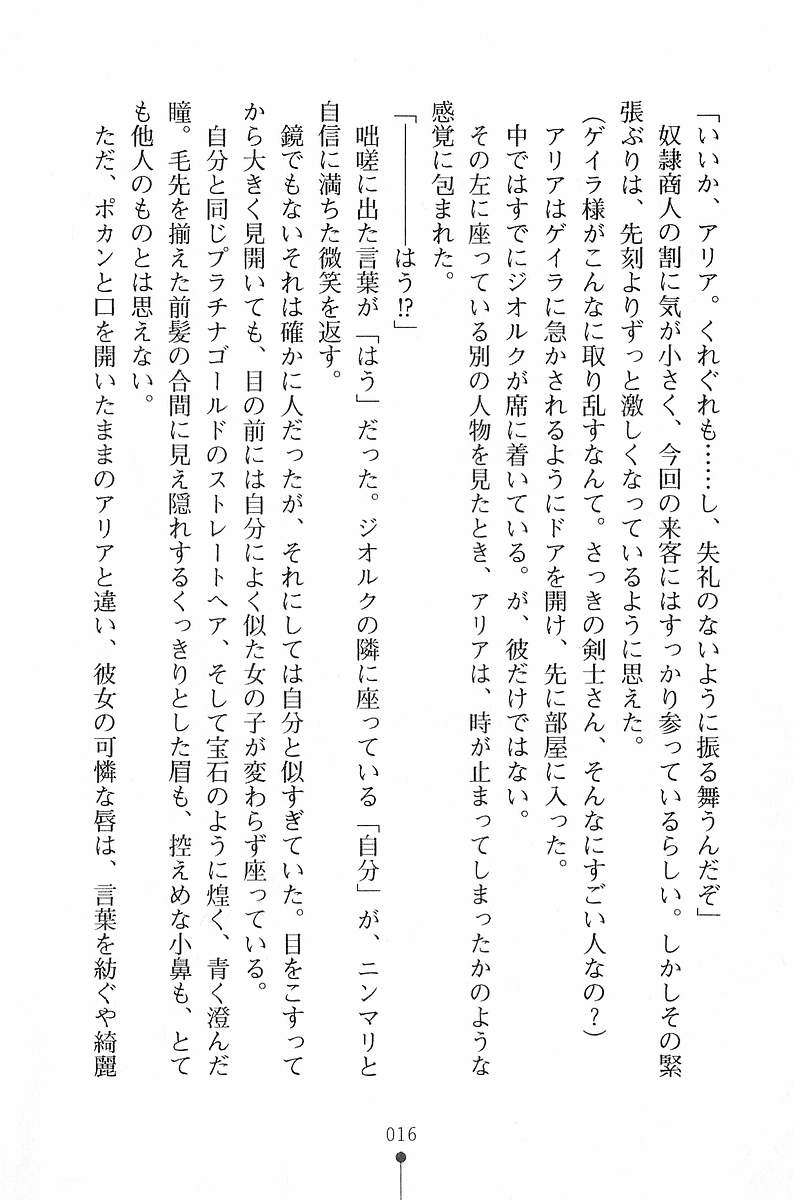 「いいか、アリア。くれぐれも……し、失礼のないように振る舞うんだぞ」
　奴隷商人の割に気が小さく、今回の来客にはすっかり参っているらしい。しかしその緊
張ぶりは、先刻よりずっと激しくなっているように思えた。
（ゲイラ様がこんなに取り乱すなんて。さっきの剣士さん、そんなにすごい人なの？）
　アリアはゲイラに急かされるようにドアを開け、先に部屋に入った。
　中ではすでにジオルクが席に着いている。が、彼だけではない。
　その左に座っている別の人物を見たとき、アリアは、時が止まってしまったかのような
感覚に包まれた。
「―――はう!?」
　咄嗟に出た言葉が「はう」だった。ジオルクの隣に座っている「自分」が、ニンマリと
自信に満ちた微笑を返す。
　鏡でもないそれは確かに人だったが、それにしては自分と似すぎていた。目をこすって
から大きく見開いても、目の前には自分によく似た女の子が変わらず座っている。
　自分と同じプラチナゴールドのストレートヘア、そして宝石のように煌く、青く澄んだ
瞳。毛先を揃えた前髪の合間に見え隠れするくっきりとした眉も、控えめな小鼻も、とて
も他人のものとは思えない。
　ただ、ポカンと口を開いたままのアリアと違い、彼女の可憐な唇は、言葉を紡ぐや綺麗
016